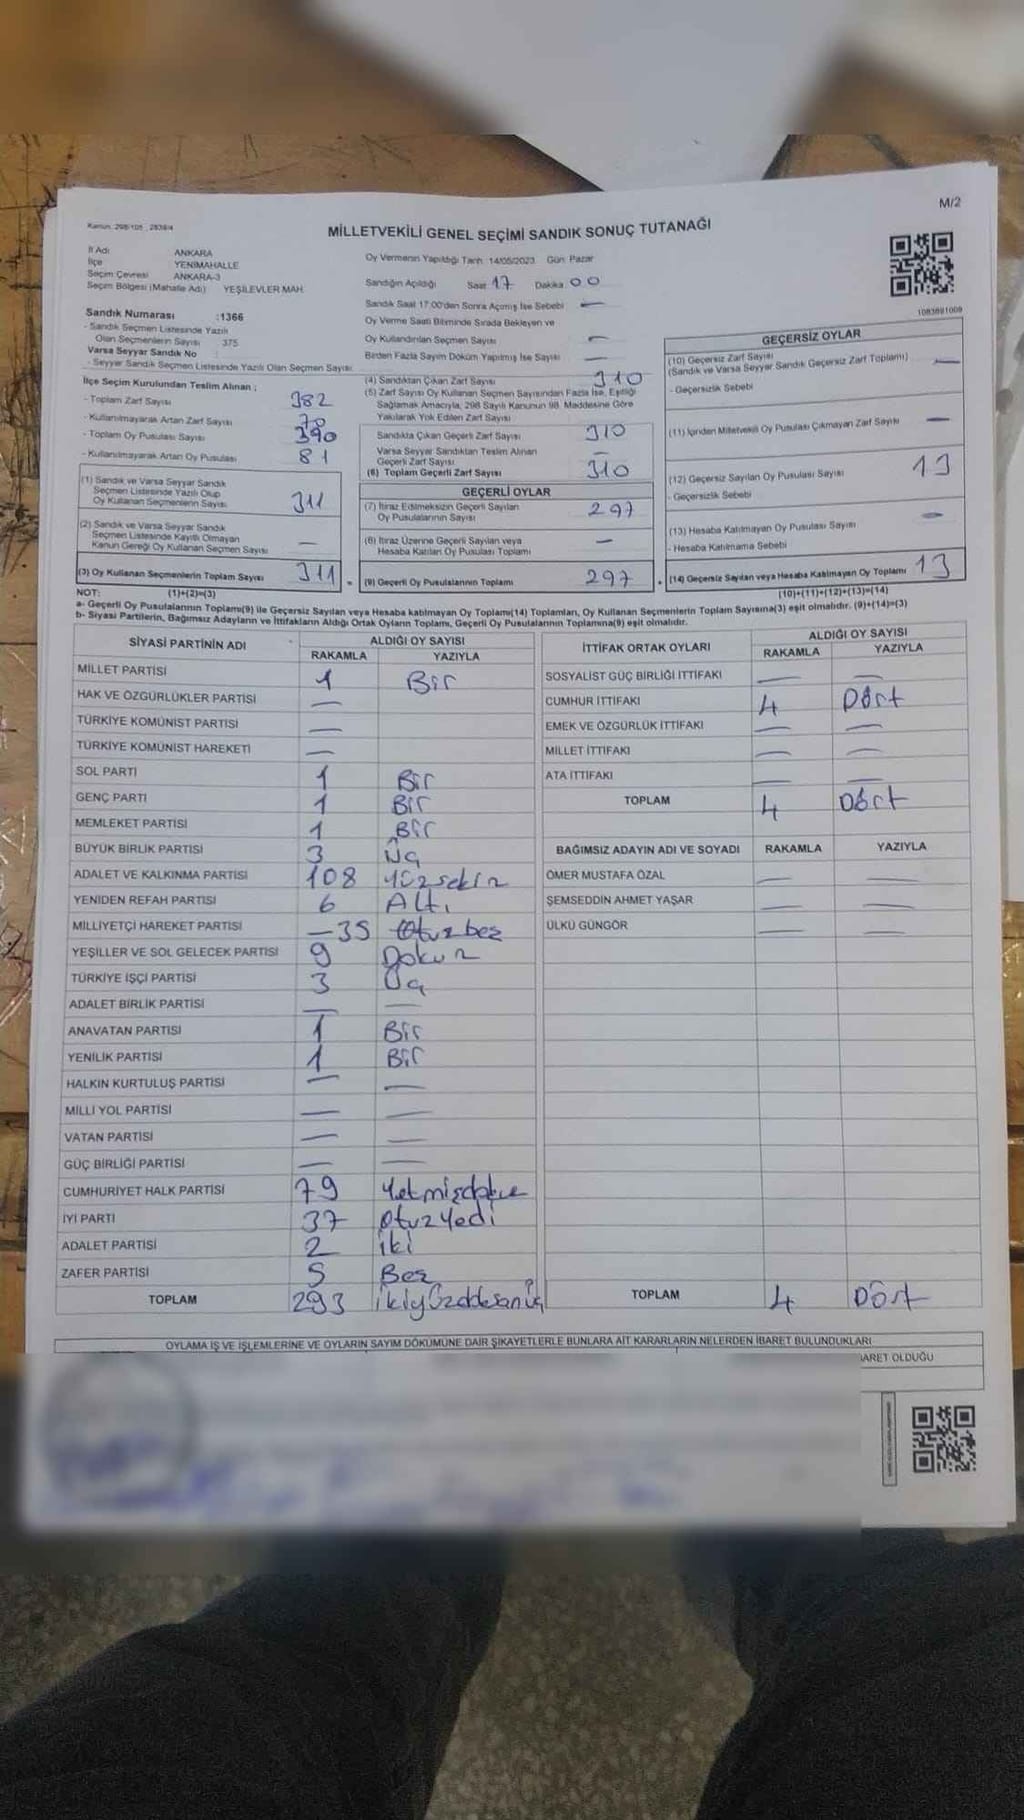 M/2
Kanun: 298/105 , 2839/4
MİLLETVEKİLİ GENEL SEÇİMİ SANDIK SONUÇ TUTANAĞI
İl Adı ANKARA
İlçe YENİMAHALLE
Seçim Çevresi ANKARA-3
Seçim Bölgesi (Mahalle Adı) YEŞİLEVLER MAH.
Oy Vermenin Yapıldığı Tarih: 14/05/2023 Gün: Pazar
Sandığın Açıldığı Saat 17 Dakika 00
Sandık Saat 17:00'den Sonra Açılmış İse Sebebi —
Oy Verme Saati Bitiminde Sırada Bekleyen ve
Oy Kullandırılan Seçmen Sayısı —
Birden Fazla Sayım Döküm Yapılmış İse Sayısı —
1083691009
Sandık Numarası :1366
- Sandık Seçmen Listesinde Yazılı
Olan Seçmenlerin Sayısı 375
Varsa Seyyar Sandık No :
- Seyyar Sandık Seçmen Listesinde Yazılı Olan Seçmen Sayısı:
İlçe Seçim Kurulundan Teslim Alınan ;
- Toplam Zarf Sayısı 382
- Kullanılmayarak Artan Zarf Sayısı
- Toplam Oy Pusulası Sayısı 390
- Kullanılmayarak Artan Oy Pusulası 81
(1) Sandık ve Varsa Seyyar Sandık
Seçmen Listesinde Yazılı Olup
Oy Kullanan Seçmenlerin Sayısı 311
(2) Sandık ve Varsa Seyyar Sandık
Seçmen Listesinde Kayıtlı Olmayan
Kanun Gereği Oy Kullanan Seçmen Sayısı —
(3) Oy Kullanan Seçmenlerin Toplam Sayısı 311 =
(1)+(2)=(3)
(4) Sandıktan Çıkan Zarf Sayısı 310
(5) Zarf Sayısı Oy Kullanan Seçmen Sayısından Fazla İse, Eşitliği
Sağlamak Amacıyla, 298 Sayılı Kanunun 98. Maddesine Göre
Yakılarak Yok Edilen Zarf Sayısı
Sandıkta Çıkan Geçerli Zarf Sayısı 310
Varsa Seyyar Sandıktan Teslim Alınan
Geçerli Zarf Sayısı —
(6) Toplam Geçerli Zarf Sayısı 310
GEÇERLİ OYLAR
(7) İtiraz Edilmeksizin Geçerli Sayılan
Oy Pusulalarının Sayısı 297
(8) İtiraz Üzerine Geçerli Sayılan veya
Hesaba Katılan Oy Pusulası Toplamı —
(9) Geçerli Oy Pusulalarının Toplamı 297 +
GEÇERSİZ OYLAR
(10) Geçersiz Zarf Sayısı
(Sandık ve Varsa Seyyar Sandık Geçersiz Zarf Toplamı) —
- Geçersizlik Sebebi
(11) İçinden Milletvekili Oy Pusulası Çıkmayan Zarf Sayısı —
(12) Geçersiz Sayılan Oy Pusulası Sayısı 13
- Geçersizlik Sebebi
(13) Hesaba Katılmayan Oy Pusulası Sayısı —
- Hesaba Katılmama Sebebi
(14) Geçersiz Sayılan veya Hesaba Katılmayan Oy Toplamı 13
(10)+(11)+(12)+(13)=(14)
NOT:
a- Geçerli Oy Pusulalarının Toplamı(9) ile Geçersiz Sayılan veya Hesaba katılmayan Oy Toplamı(14) Toplamları, Oy Kullanan Seçmenlerin Toplam Sayısına(3) eşit olmalıdır. (9)+(14)=(3)
b- Siyasi Partilerin, Bağımsız Adayların ve İttifakların Aldığı Ortak Oyların Toplamı, Geçerli Oy Pusulalarının Toplamına(9) eşit olmalıdır.
SİYASİ PARTİNİN ADI ALDIĞI OY SAYISI
RAKAMLA YAZIYLA
MİLLET PARTİSİ 1 Bir
HAK VE ÖZGÜRLÜKLER PARTİSİ —
TÜRKİYE KOMÜNİST PARTİSİ —
TÜRKİYE KOMÜNİST HAREKETİ —
SOL PARTİ 1 Bir
GENÇ PARTİ 1 Bir
MEMLEKET PARTİSİ 1 Bir
BÜYÜK BİRLİK PARTİSİ 3 Üç
ADALET VE KALKINMA PARTİSİ 108 Yüzsekiz
YENİDEN REFAH PARTİSİ 6 Altı
MİLLİYETÇİ HAREKET PARTİSİ —35 Otuzbeş
YEŞİLLER VE SOL GELECEK PARTİSİ 9 Dokuz
TÜRKİYE İŞÇİ PARTİSİ 3 Üç
ADALET BİRLİK PARTİSİ — —
ANAVATAN PARTİSİ 1 Bir
YENİLİK PARTİSİ 1 Bir
HALKIN KURTULUŞ PARTİSİ — —
MİLLİ YOL PARTİSİ — —
VATAN PARTİSİ — —
GÜÇ BİRLİĞİ PARTİSİ — —
CUMHURİYET HALK PARTİSİ 79 Yetmişdokuz
İYİ PARTİ 37 Otuzyedi
ADALET PARTİSİ 2 İki
ZAFER PARTİSİ 5 Beş
TOPLAM 293
İTTİFAK ORTAK OYLARI ALDIĞI OY SAYISI
RAKAMLA YAZIYLA
SOSYALİST GÜÇ BİRLİĞİ İTTİFAKI — —
CUMHUR İTTİFAKI 4 Dört
EMEK VE ÖZGÜRLÜK İTTİFAKI — —
MİLLET İTTİFAKI — —
ATA İTTİFAKI — —
TOPLAM 4 Dört
BAĞIMSIZ ADAYIN ADI VE SOYADI RAKAMLA YAZIYLA
ÖMER MUSTAFA ÖZAL — —
ŞEMSEDDİN AHMET YAŞAR — —
ÜLKÜ GÜNGÖR — —
TOPLAM 4 Dört
OYLAMA İŞ VE İŞLEMLERİNE VE OYLARIN SAYIM DÖKÜMÜNE DAİR ŞİKAYETLERLE BUNLARA AİT KARARLARIN NELERDEN İBARET BULUNDUKLARI
BARET OLDUĞU